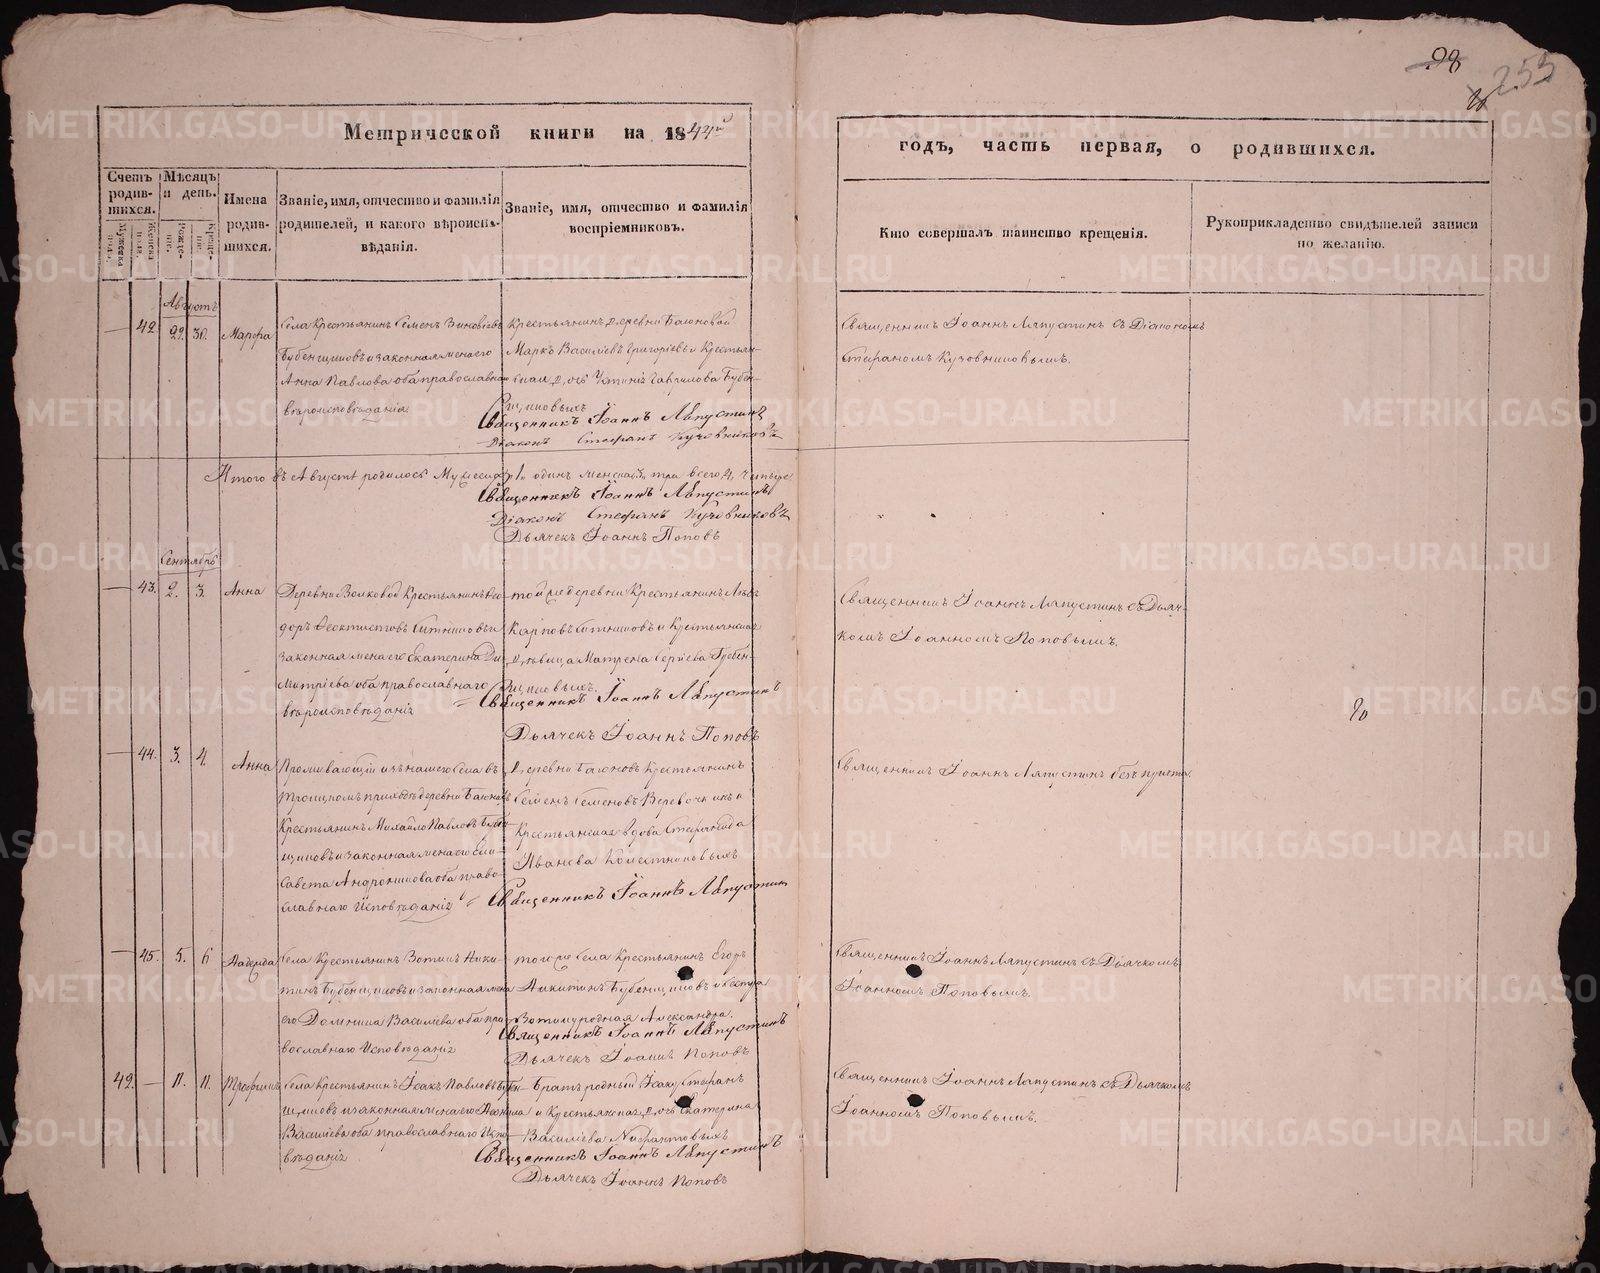 98
255
Метрической книги на 1844й
годъ, часть первая, о родившихся.
Счетъ родив-шихся.
Мужеска полъ.
Женска полъ.
Мѣсяцъ и день.
Рожде-ніе.
Креще-ніе.
Имена родив-шихся.
Званіе, имя, отчество и фамилія родителей, и какого вѣроиспо-вѣданія.
Званіе, имя, отчество и фамилія воспріемниковъ.
Кто совершалъ таинство крещенія.
Рукоприкладство свидѣтелей записи по желанію.
Августъ
— 42. 29. 30. Марфа
Села Крестьянинъ Семенъ Зиновіевъ
Бубенщиковъ и законная жена его
Анна Павлова оба православнаго
вѣроисповѣданія
Крестьянинъ деревни Баюновой
Марко Василіевъ Григоріевъ и Крестьян-
ская дочь Устинія Гаврилова Бубен-
щиковыхъ
Священникъ Іоаннъ Ляпустинъ
Діаконъ Стефанъ Кузовниковъ
Священникъ Іоаннъ Ляпустинъ съ Діакономъ
Стефаномъ Кузовниковымъ.
Итого въ Августѣ родилось Мужеска 1. одинъ женска 3, три всего 4, четыре
Священникъ Іоаннъ Ляпустинъ
Діаконъ Стефанъ Кузовниковъ
Дьячекъ Іоаннъ Поповъ
Сентябрь
— 43. 2. 3. Анна
Деревни Волковой Крестьянинъ Ѳео-
доръ Ѳеоктистовъ Ситниковъ и
законная жена его Екатерина Ди-
митріева оба православнаго
вѣроисповѣданія
той же деревни Крестьянинъ
Карповъ Ситниковъ и Крестьянская
дѣвица Матрена Сергіева Бубен-
щиковыхъ.
Священникъ Іоаннъ Ляпустинъ
Дьячекъ Іоаннъ Поповъ
Священникъ Іоаннъ Ляпустинъ съ Дьяч-
комъ Іоанномъ Поповымъ.
— 44. 3. 4. Анна
Проживающій изъ нашего Села въ
Троицкомъ приходѣ деревни Баюновой
Крестьянинъ Михайло Павловъ Бубен-
щиковъ и законная жена его Ели-
савета Андроникова оба право-
славнаго Исповѣданія
Деревни Баюновой Крестьянинъ
Семенъ Семеновъ Веревочкинъ и
Крестьянская вдова Стефанида
Иванова Колесниковыхъ
Священникъ Іоаннъ Ляпустинъ
Священникъ Іоаннъ Ляпустинъ безъ причта
— 45. 5. 6 Надежда
Села Крестьянинъ Зотикъ Ники-
тинъ Бубенщиковъ и законная жена
его Домника Василіева оба пра-
вославнаго Исповѣданія
того же села Крестьянинъ Егоръ
Никитинъ Бубенщиковъ и сестра
Зотику родная Александра.
Священникъ Іоаннъ Ляпустинъ
Дьячекъ Іоаннъ Поповъ
Священникъ Іоаннъ Ляпустинъ съ Дьячкомъ
Іоанномъ Поповымъ.
42. — 11. 11. Трофимъ
Села Крестьянинъ Исакъ Павловъ Бубен-
щиковъ и законная жена его
Василіева оба православнаго Испо-
вѣданія
Братъ родный Исаку Стефанъ
и Крестьянская дочь Екатерина
Василіева
Священникъ Іоаннъ Ляпустинъ
Дьячекъ Іоаннъ Поповъ
Священникъ Іоаннъ Ляпустинъ съ Дьячкомъ
Іоанномъ Поповымъ.
METRIKI.GASO-URAL.RU